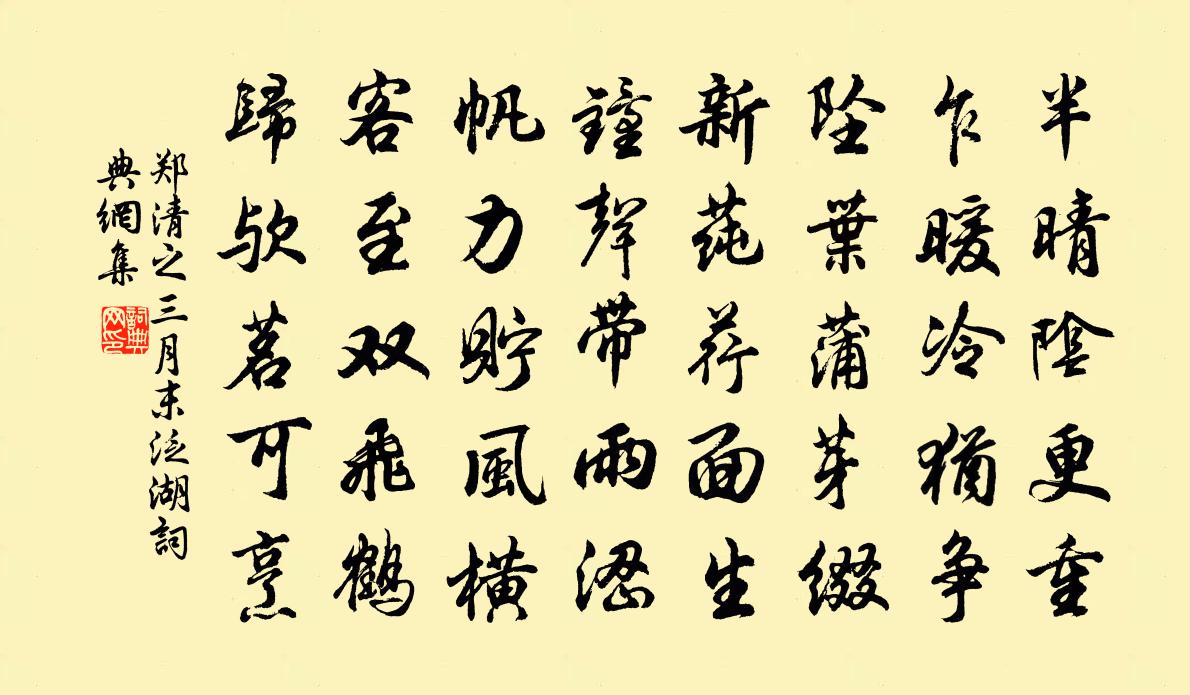 半晴陰更重
乍暖冷猶争
坠葉蒲芽綴
新莼荇面生
鐘聲带雨涩
帆力貯風橫
客至双飛鶴
歸欤茗可烹
郑清之三月末泛湖詞
典網集
詞典
网印